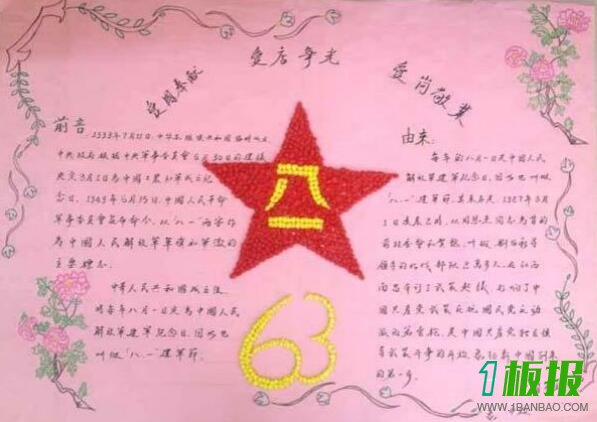 爱国奉献
爱店争光
爱岗敬业
前言:1933年7月11日,中华苏维埃共和国临时
中央政府根据中央革命军事委员会6月30日的建议
决定8月1日为中国工农红军成立纪
念日。1949年6月15日,中国人民革命
军事委员会发布命令,以"八一"两字作
为中国人民解放军军旗和军徽的
主要标志。
中华人民共和国成立后,
将每年八月一日定为中国人民
解放军建军纪念日,因此也
叫做"八.一"建军节。
八一
63
由来:
每年的八月一日是中国人民
解放军建军纪念日,因此也叫
"八.一"建军节。其来历是,1927年8月
1日凌晨2时,以周恩来同志为首的
前敌委员会和贺龙、叶挺、
领导的北伐部队三万多人,在江西
南昌举行了武装起义,打响了中
国共产党武装反抗国民党反动
派的第一枪,是中国共产党独立领
导武装斗争的开始,
的第一步。
1板报
WWW.1BANBAO.COM